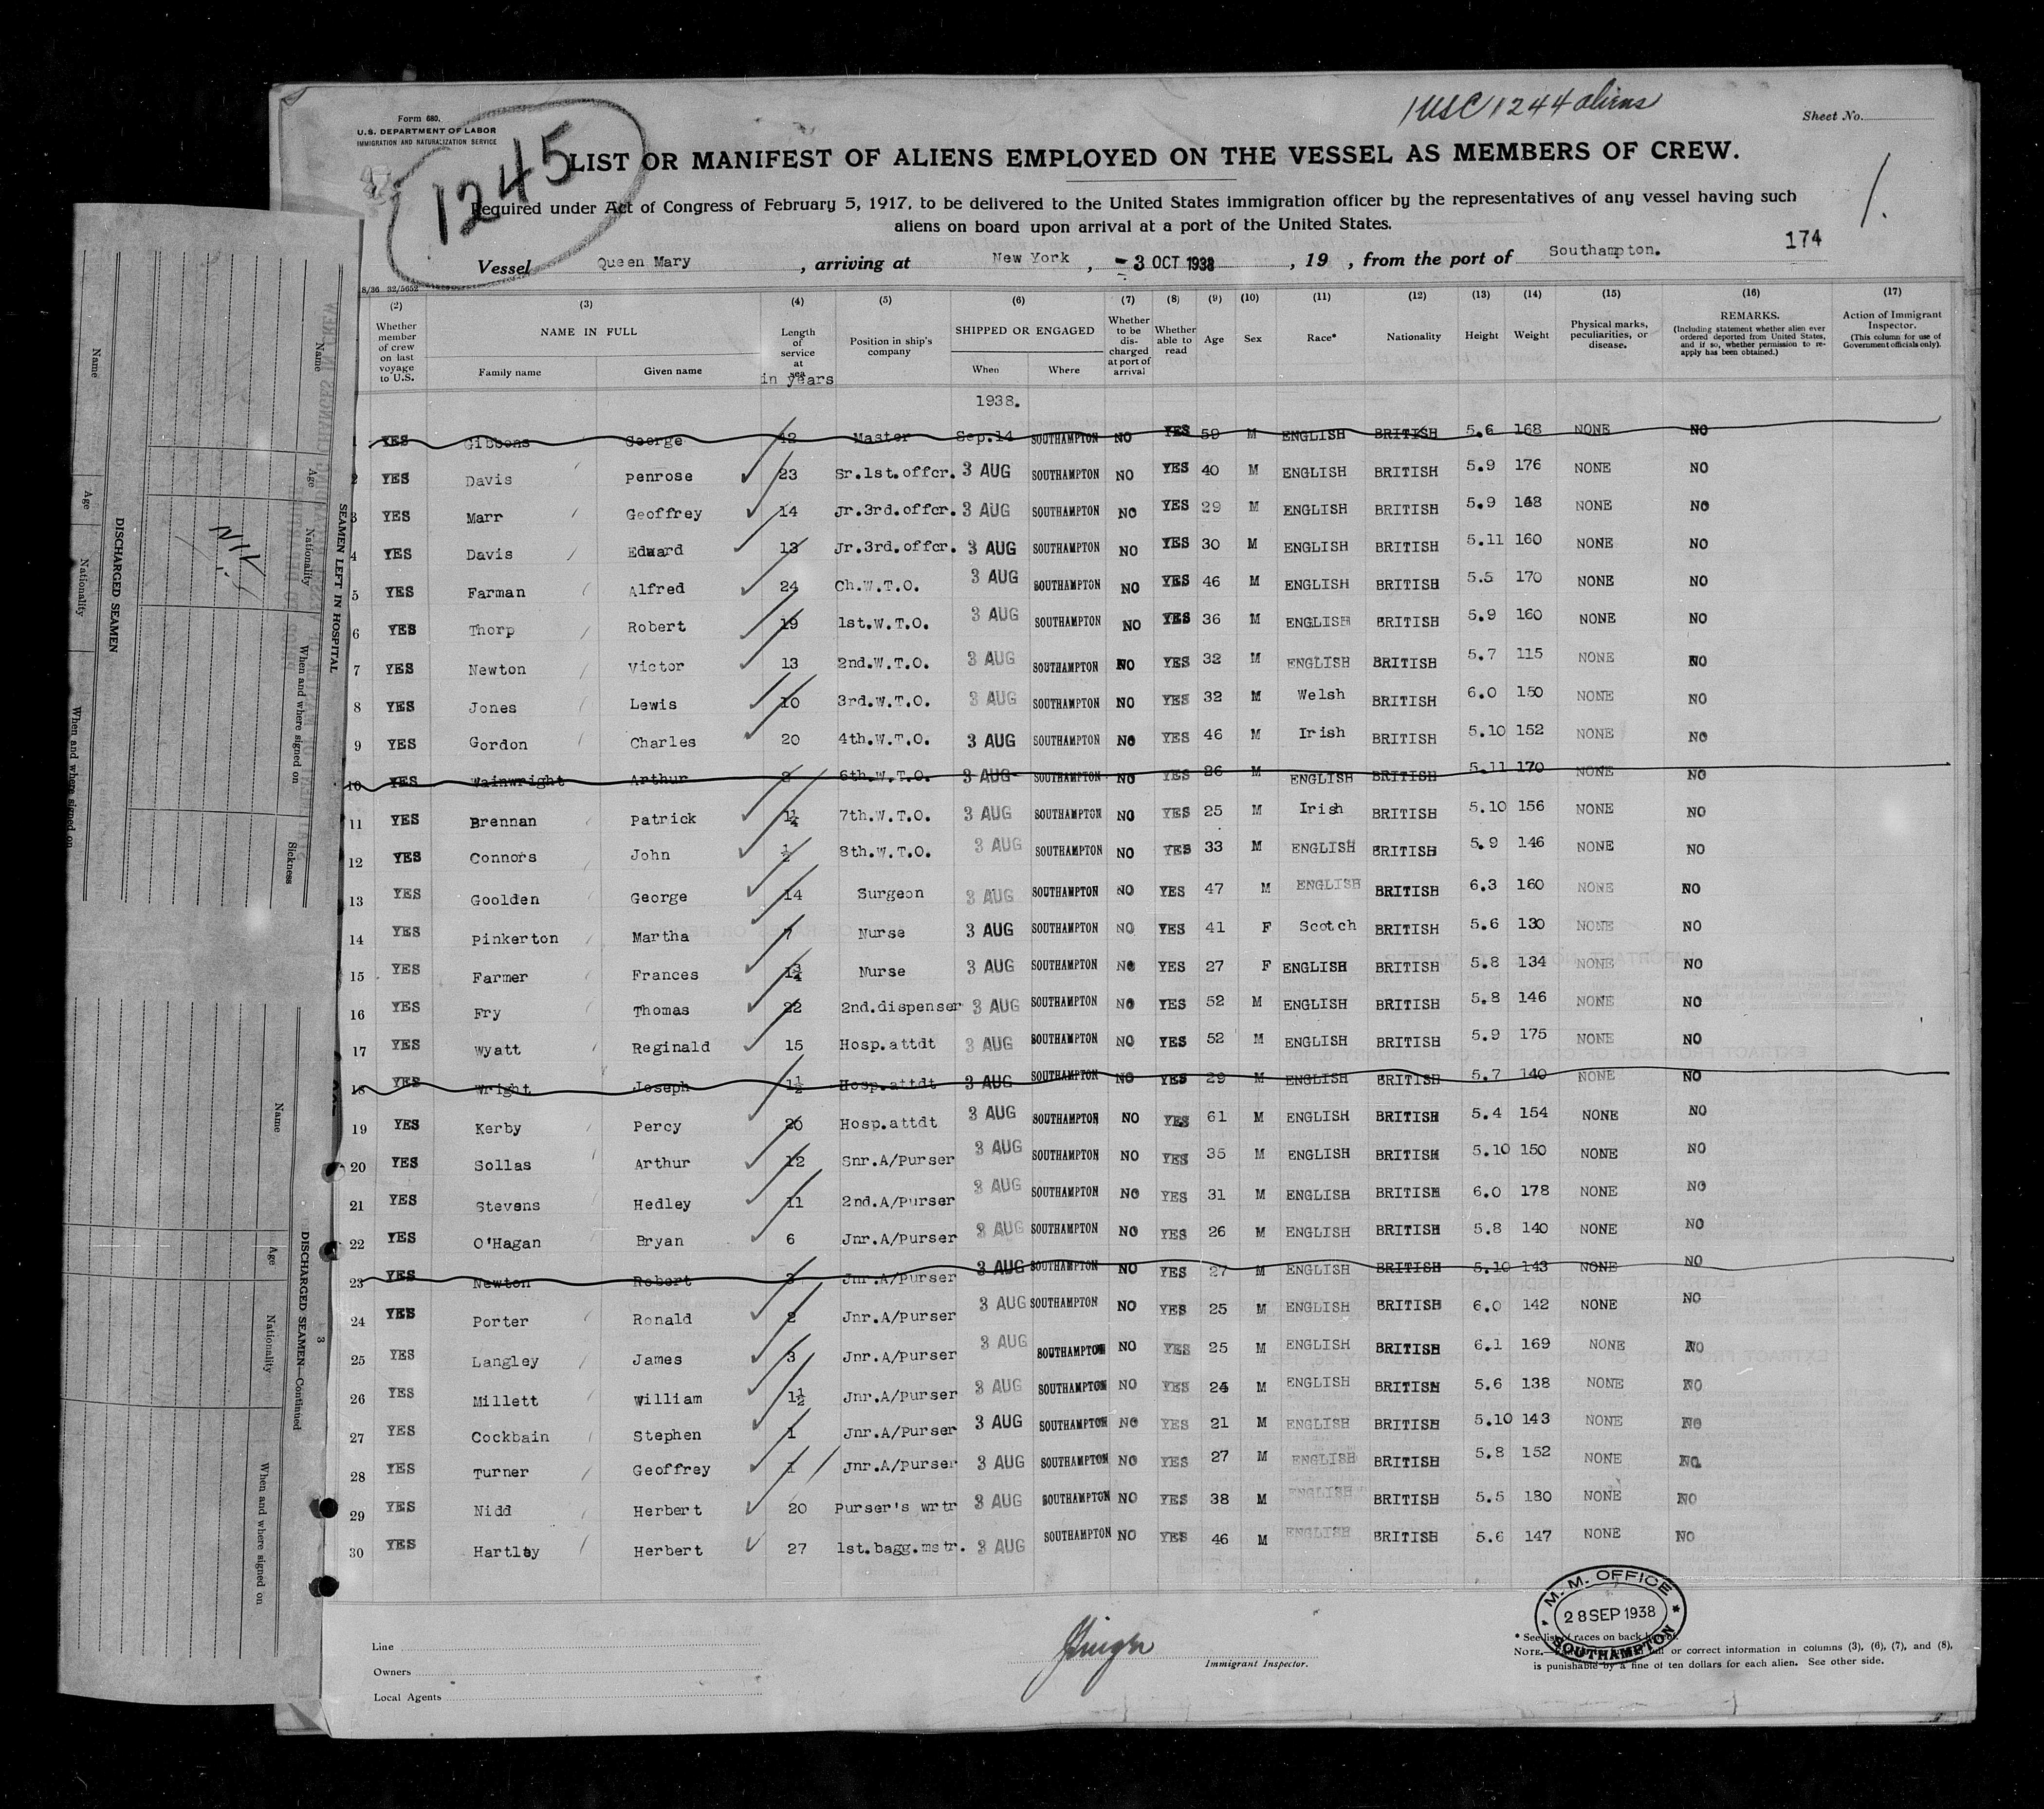 1 USC 1244 aliens
Form 680.
U.S. DEPARTMENT OF LABOR
IMMIGRATION AND NATURALIZATION SERVICE
Sheet No.
1245
LIST OR MANIFEST OF ALIENS EMPLOYED ON THE VESSEL AS MEMBERS OF CREW.
1.
Required under Act of Congress of February 5, 1917, to be delivered to the United States immigration officer by the representatives of any vessel having such
aliens on board upon arrival at a port of the United States.
174
Vessel Queen Mary, arriving at New York, - 3 OCT 1938, 19 , from the port of Southampton.
8/36 32/5652
(2) (3) (4) (5) (6) (7) (8) (9) (10) (11) (12) (13) (14) (15) (16) (17)
Whether member of crew on last voyage to U.S. NAME IN FULL Family name Given name Length of service at sea in years Position in ship's company SHIPPED OR ENGAGED When Where Whether to be discharged at port of arrival Whether able to read Age Sex Race* Nationality Height Weight Physical marks, peculiarities, or disease. REMARKS. (Including statement whether alien ever ordered deported from United States, and if so, whether permission to reapply has been obtained.) Action of Immigrant Inspector. (This column for use of Government officials only).
1938.
1 YES Gibbons George 42 Master Sep.14 SOUTHAMPTON NO YES 59 M ENGLISH BRITISH 5.6 168 NONE NO
2 YES Davis Penrose 23 Sr.1st.offcr. 3 AUG SOUTHAMPTON NO YES 40 M ENGLISH BRITISH 5.9 176 NONE NO
3 YES Marr Geoffrey 14 Jr.3rd.offcr. 3 AUG SOUTHAMPTON NO YES 29 M ENGLISH BRITISH 5.9 168 NONE NO
4 YES Davis Edward 13 Jr.3rd.offcr. 3 AUG SOUTHAMPTON NO YES 30 M ENGLISH BRITISH 5.11 160 NONE NO
5 YES Farman Alfred 24 Ch.W.T.O. 3 AUG SOUTHAMPTON NO YES 46 M ENGLISH BRITISH 5.5 170 NONE NO
6 YES Thorp Robert 19 1st.W.T.O. 3 AUG SOUTHAMPTON NO YES 36 M ENGLISH BRITISH 5.9 160 NONE NO
7 YES Newton Victor 13 2nd.W.T.O. 3 AUG SOUTHAMPTON NO YES 32 M ENGLISH BRITISH 5.7 115 NONE NO
8 YES Jones Lewis 10 3rd.W.T.O. 3 AUG SOUTHAMPTON NO YES 32 M Welsh BRITISH 6.0 150 NONE NO
9 YES Gordon Charles 20 4th.W.T.O. 3 AUG SOUTHAMPTON NO YES 46 M Irish BRITISH 5.10 152 NONE NO
10 YES Wainwright Arthur 6th.W.T.O. 3 AUG SOUTHAMPTON NO YES 26 M ENGLISH BRITISH 5.11 170 NONE NO
11 YES Brennan Patrick 1¼ 7th.W.T.O. 3 AUG SOUTHAMPTON NO YES 25 M Irish BRITISH 5.10 156 NONE NO
12 YES Connors John ½ 8th.W.T.O. 3 AUG SOUTHAMPTON NO YES 33 M ENGLISH BRITISH 5.9 146 NONE NO
13 YES Goolden George 14 Surgeon 3 AUG SOUTHAMPTON NO YES 47 M ENGLISH BRITISH 6.3 160 NONE NO
14 YES Pinkerton Martha 7 Nurse 3 AUG SOUTHAMPTON NO YES 41 F Scotch BRITISH 5.6 130 NONE NO
15 YES Farmer Frances 1¾ Nurse 3 AUG SOUTHAMPTON NO YES 27 F ENGLISH BRITISH 5.8 134 NONE NO
16 YES Fry Thomas 22 2nd.dispenser 3 AUG SOUTHAMPTON NO YES 52 M ENGLISH BRITISH 5.8 146 NONE NO
17 YES Wyatt Reginald 15 Hosp.attdt 3 AUG SOUTHAMPTON NO YES 52 M ENGLISH BRITISH 5.9 175 NONE NO
18 YES Wright Joseph 1½ Hosp.attdt 3 AUG SOUTHAMPTON NO YES 29 M ENGLISH BRITISH 5.7 140 NONE NO
19 YES Kerby Percy 20 Hosp.attdt 3 AUG SOUTHAMPTON NO YES 61 M ENGLISH BRITISH 5.4 154 NONE NO
20 YES Sollas Arthur 12 Snr.A/Purser 3 AUG SOUTHAMPTON NO YES 35 M ENGLISH BRITISH 5.10 150 NONE NO
21 YES Stevens Hedley 11 2nd.A/Purser 3 AUG SOUTHAMPTON NO YES 31 M ENGLISH BRITISH 6.0 178 NONE NO
22 YES O'Hagan Bryan 6 Jnr.A/Purser 3 AUG SOUTHAMPTON NO YES 26 M ENGLISH BRITISH 5.8 140 NONE NO
23 YES Newton Robert 3 Jnr.A/Purser 3 AUG SOUTHAMPTON NO YES 27 M ENGLISH BRITISH 5.10 143 NONE NO
24 YES Porter Ronald 2 Jnr.A/Purser 3 AUG SOUTHAMPTON NO YES 25 M ENGLISH BRITISH 6.0 142 NONE NO
25 YES Langley James 3 Jnr.A/Purser 3 AUG SOUTHAMPTON NO YES 25 M ENGLISH BRITISH 6.1 169 NONE NO
26 YES Millett William 1½ Jnr.A/Purser 3 AUG SOUTHAMPTON NO YES 24 M ENGLISH BRITISH 5.6 138 NONE NO
27 YES Cockbain Stephen 1 Jnr.A/Purser 3 AUG SOUTHAMPTON NO YES 21 M ENGLISH BRITISH 5.10 143 NONE NO
28 YES Turner Geoffrey 1 Jnr.A/Purser 3 AUG SOUTHAMPTON NO YES 27 M ENGLISH BRITISH 5.8 152 NONE NO
29 YES Nidd Herbert 20 Purser's wrtr 3 AUG SOUTHAMPTON NO YES 38 M ENGLISH BRITISH 5.5 180 NONE NO
30 YES Hartley Herbert 27 1st.bagg.mstr. 3 AUG SOUTHAMPTON NO YES 46 M ENGLISH BRITISH 5.6 147 NONE NO
Line
Owners
Local Agents
Immigrant Inspector.
M. M. OFFICE
28 SEP 1938
SOUTHAMPTON
* See list of races on back hereof.
NOTE.— or correct information in columns (3), (6), (7), and (8),
is punishable by a fine of ten dollars for each alien. See other side.
SEAMEN LEFT IN HOSPITAL
Name Age Nationality When and where signed on Sickness
NIL
DISCHARGED SEAMEN
Name Age Nationality When and where signed on
DISCHARGED SEAMEN—Continued 3
Name Age Nationality When and where signed on